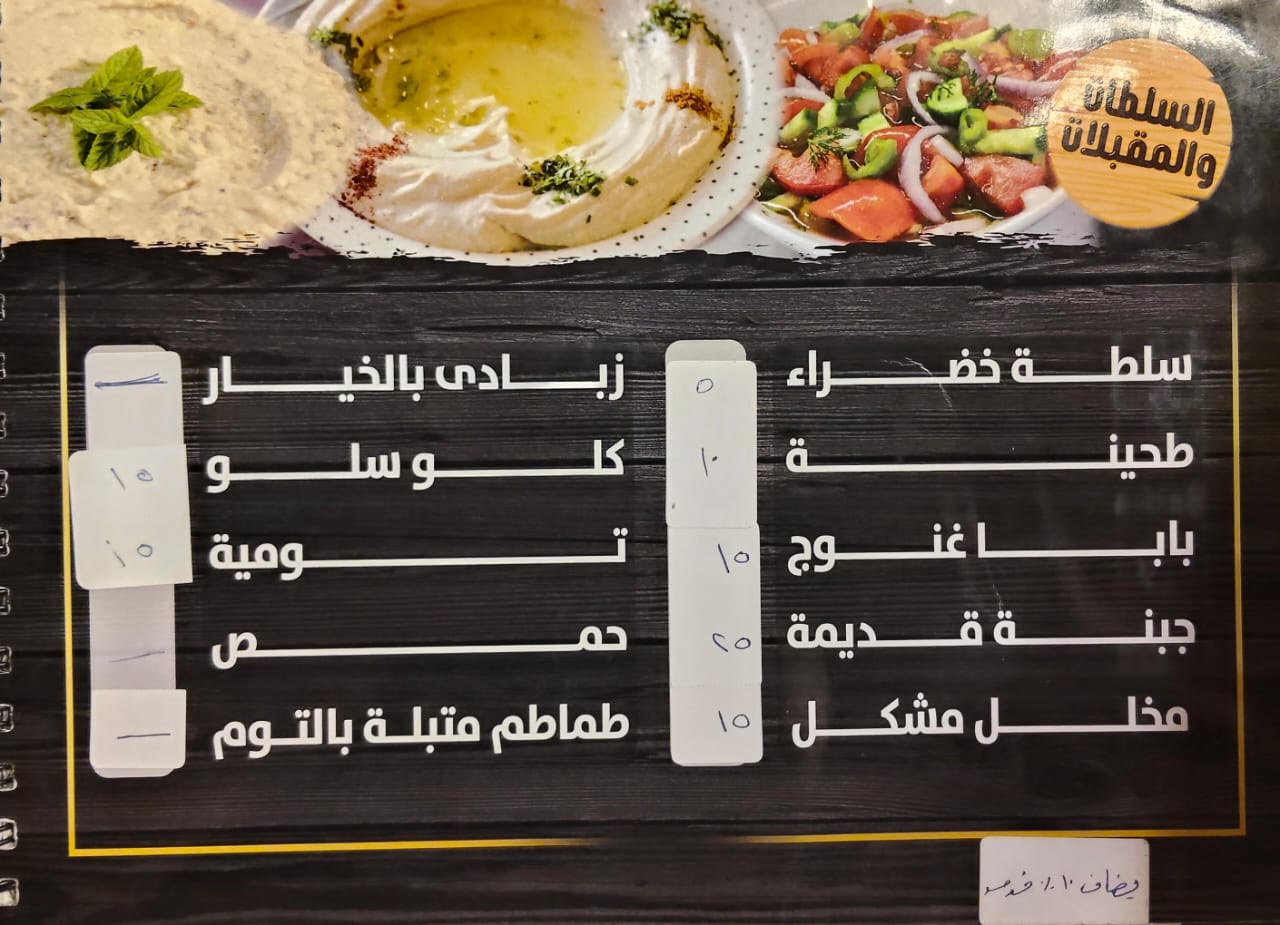 السلطات
والمقبلات
سلطة خضراء ٥
طحينة ١٠
بابا غنوج ١٥
جبنة قديمة ٢٥
مخلل مشكل ١٥
زبادى بالخيار —
كلو سلو ١٥
تومية ١٥
حمص —
طماطم متبلة بالتوم —
يضاف ١٠٪